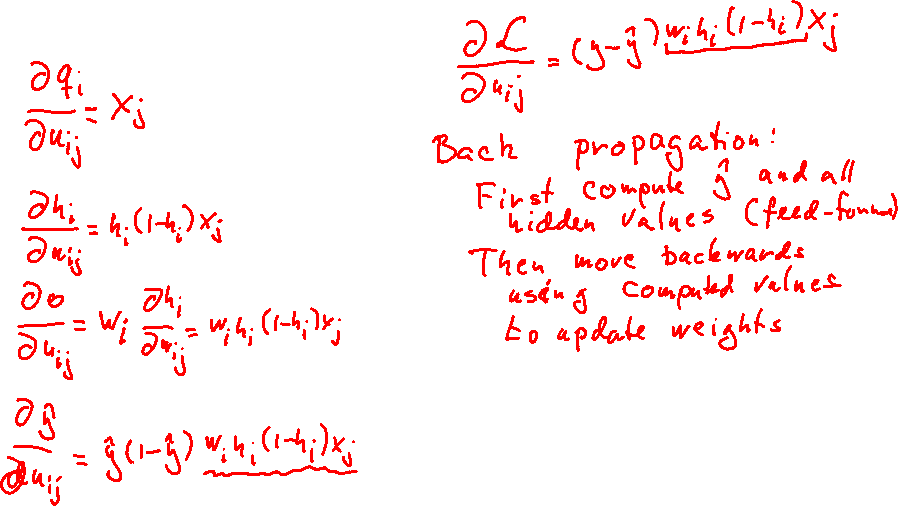 ∂qᵢ/∂uᵢⱼ = xⱼ
∂hᵢ/∂uᵢⱼ = hᵢ(1-hᵢ)xⱼ
∂o/∂uᵢⱼ = wᵢ ∂hᵢ/∂uᵢⱼ = wᵢhᵢ(1-hᵢ)xⱼ
∂ŷ/∂uᵢⱼ = ŷ(1-ŷ) wᵢhᵢ(1-hᵢ)xⱼ
∂ℒ/∂uᵢⱼ = (y-ŷ) wᵢhᵢ(1-hᵢ)xⱼ
Back propagation:
First compute ŷ and all
hidden values (feed-forward)
Then move backwards
using computed values
to update weights